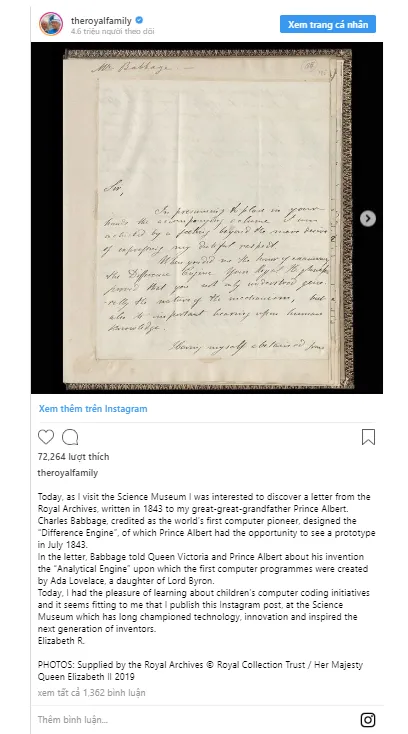 theroyalfamily
4.6 triệu người theo dõi
Xem trang cá nhân
Mr Babbage
Sir,
In presuming to place in your
hands the accompanying volume I was
actuated by a feeling beyond the mere desire
of expressing my dutiful respect.
When you did me the honor of examining
the Difference Engine Your Royal Highness
proved that you not only understood gene-
rally the nature of the mechanism, but
also its important bearing upon human
knowledge.
Having myself
Xem thêm trên Instagram
72,264 lượt thích
theroyalfamily
Today, as I visit the Science Museum I was interested to discover a letter from the
Royal Archives, written in 1843 to my great-great-grandfather Prince Albert.
Charles Babbage, credited as the world's first computer pioneer, designed the
“Difference Engine”, of which Prince Albert had the opportunity to see a prototype
in July 1843.
In the letter, Babbage told Queen Victoria and Prince Albert about his invention
the “Analytical Engine” upon which the first computer programmes were created
by Ada Lovelace, a daughter of Lord Byron.
Today, I had the pleasure of learning about children's computer coding initiatives
and it seems fitting to me that I publish this Instagram post, at the Science
Museum which has long championed technology, innovation and inspired the
next generation of inventors.
Elizabeth R.
PHOTOS: Supplied by the Royal Archives © Royal Collection Trust / Her Majesty
Queen Elizabeth II 2019
xem tất cả 1,362 bình luận
Thêm bình luận...